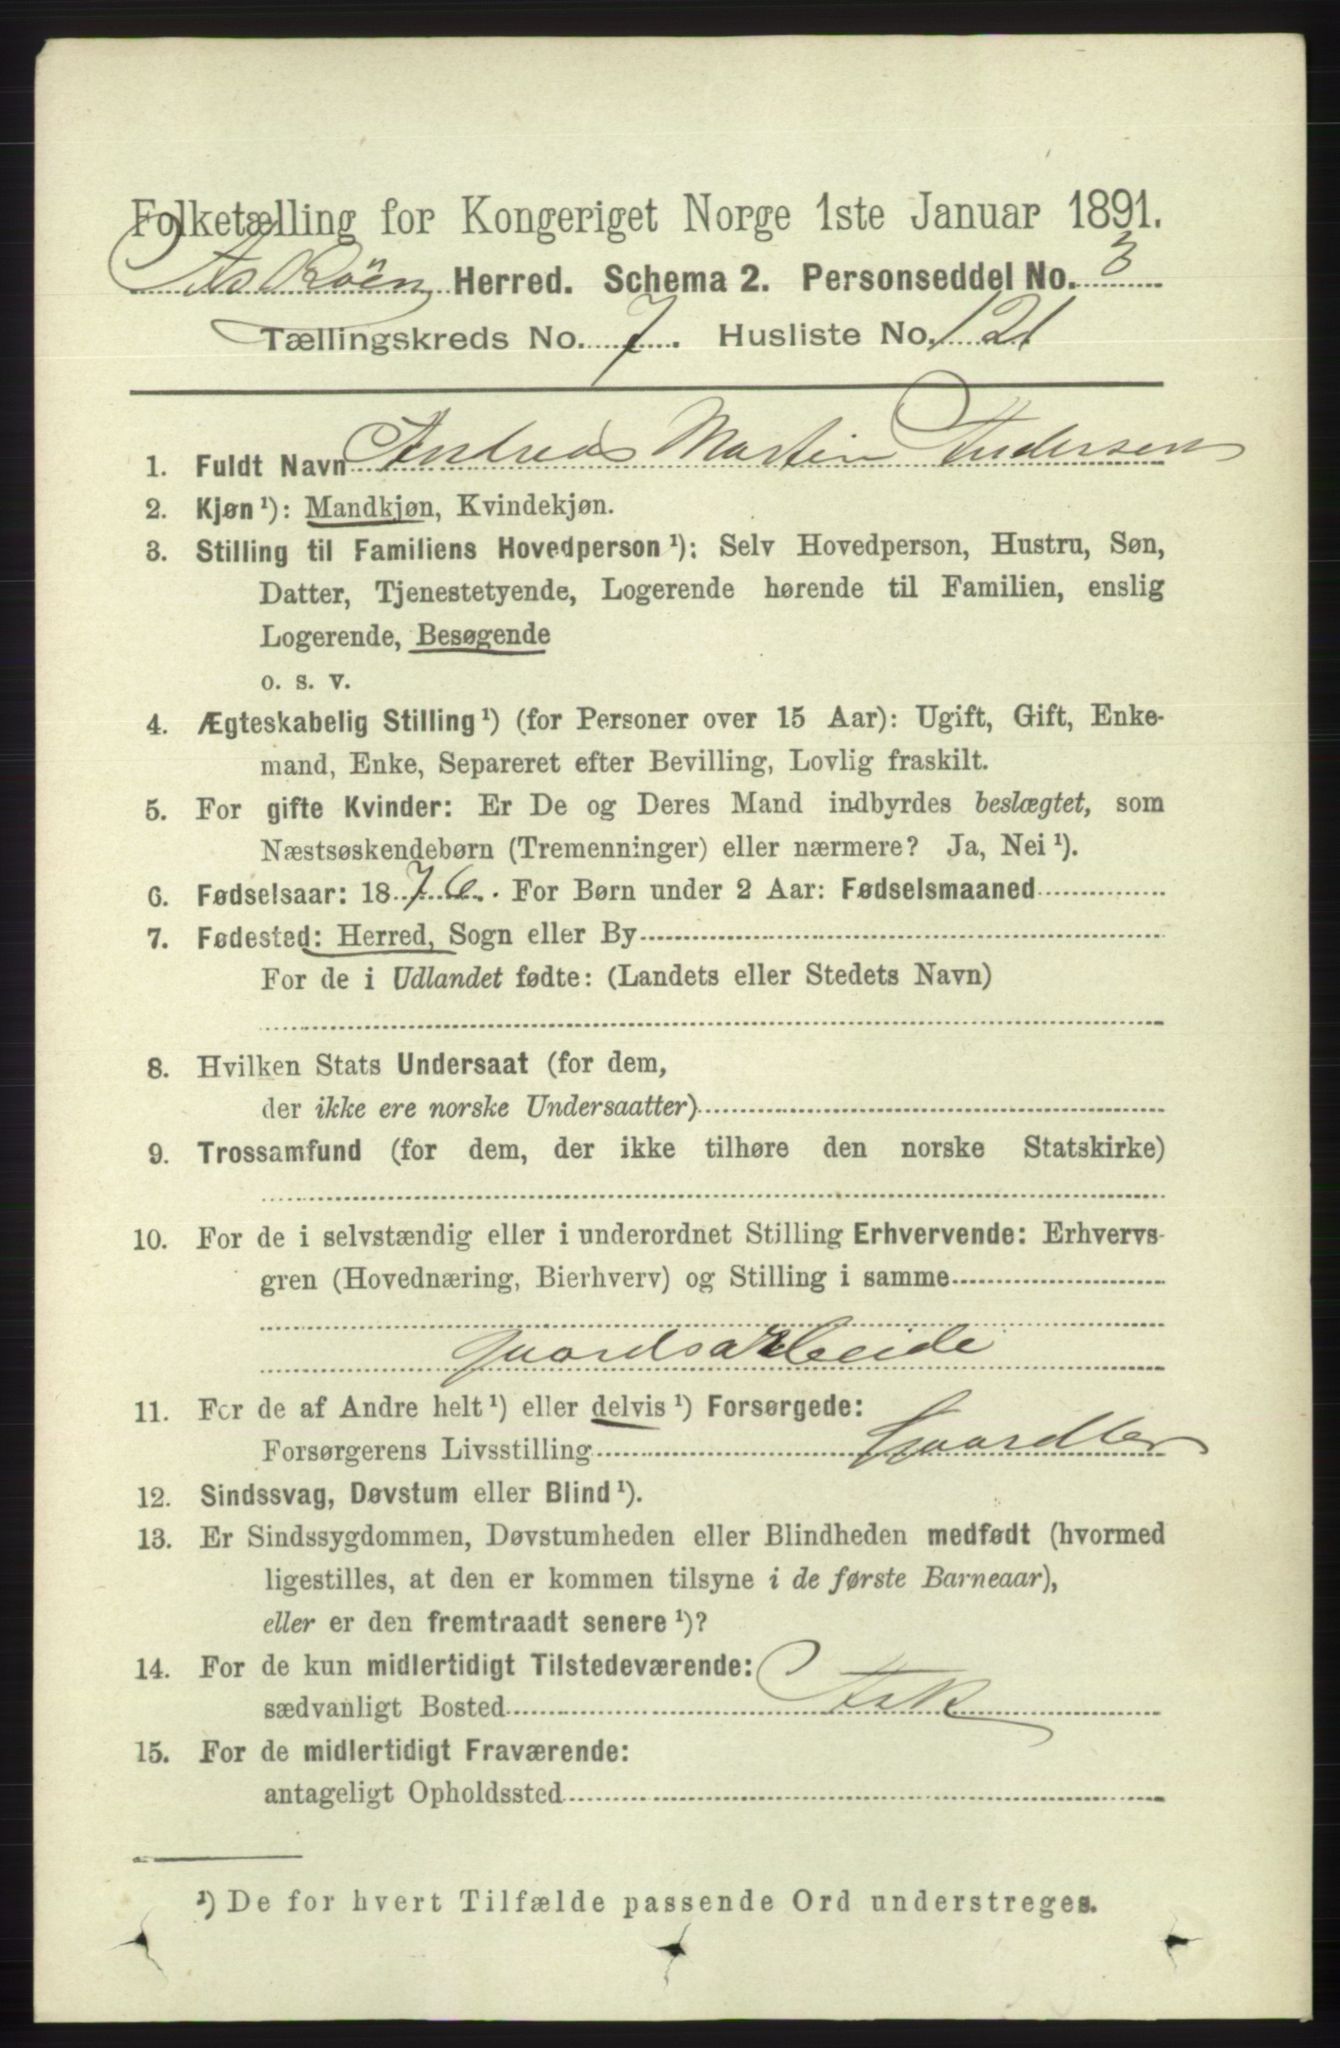 Folketælling for Kongeriget Norge 1ste Januar 1891.
Askøen Herred. Schema 2. Personseddel No. 3
Tællingskreds No. 7. Husliste No. 121
1. Fuldt Navn Andreas Martin Andersen
2. Kjøn ¹): Mandkjøn, Kvindekjøn.
3. Stilling til Familiens Hovedperson ¹): Selv Hovedperson, Hustru, Søn,
Datter, Tjenestetyende, Logerende hørende til Familien, enslig
Logerende, Besøgende
o. s. v.
4. Ægteskabelig Stilling ¹) (for Personer over 15 Aar): Ugift, Gift, Enke-
mand, Enke, Separeret efter Bevilling, Lovlig fraskilt.
5. For gifte Kvinder: Er De og Deres Mand indbyrdes beslægtet, som
Næstsøskendebørn (Tremenninger) eller nærmere? Ja, Nei ¹).
6. Fødselsaar: 1876. For Børn under 2 Aar: Fødselsmaaned
7. Fødested: Herred, Sogn eller By
For de i Udlandet fødte: (Landets eller Stedets Navn)
8. Hvilken Stats Undersaat (for dem,
der ikke ere norske Undersaatter)
9. Trossamfund (for dem, der ikke tilhøre den norske Statskirke)
10. For de i selvstændig eller i underordnet Stilling Erhvervende: Erhvervs-
gren (Hovednæring, Bierhverv) og Stilling i samme
gaardsarbeide
11. For de af Andre helt ¹) eller delvis ¹) Forsørgede:
Forsørgerens Livsstilling Gaardbr
12. Sindssvag, Døvstum eller Blind ¹).
13. Er Sindssygdommen, Døvstumheden eller Blindheden medfødt (hvormed
ligestilles, at den er kommen tilsyne i de første Barneaar),
eller er den fremtraadt senere ¹)?
14. For de kun midlertidigt Tilstedeværende:
sædvanligt Bosted Ask
15. For de midlertidigt Fraværende:
antageligt Opholdssted
¹) De for hvert Tilfælde passende Ord understreges.